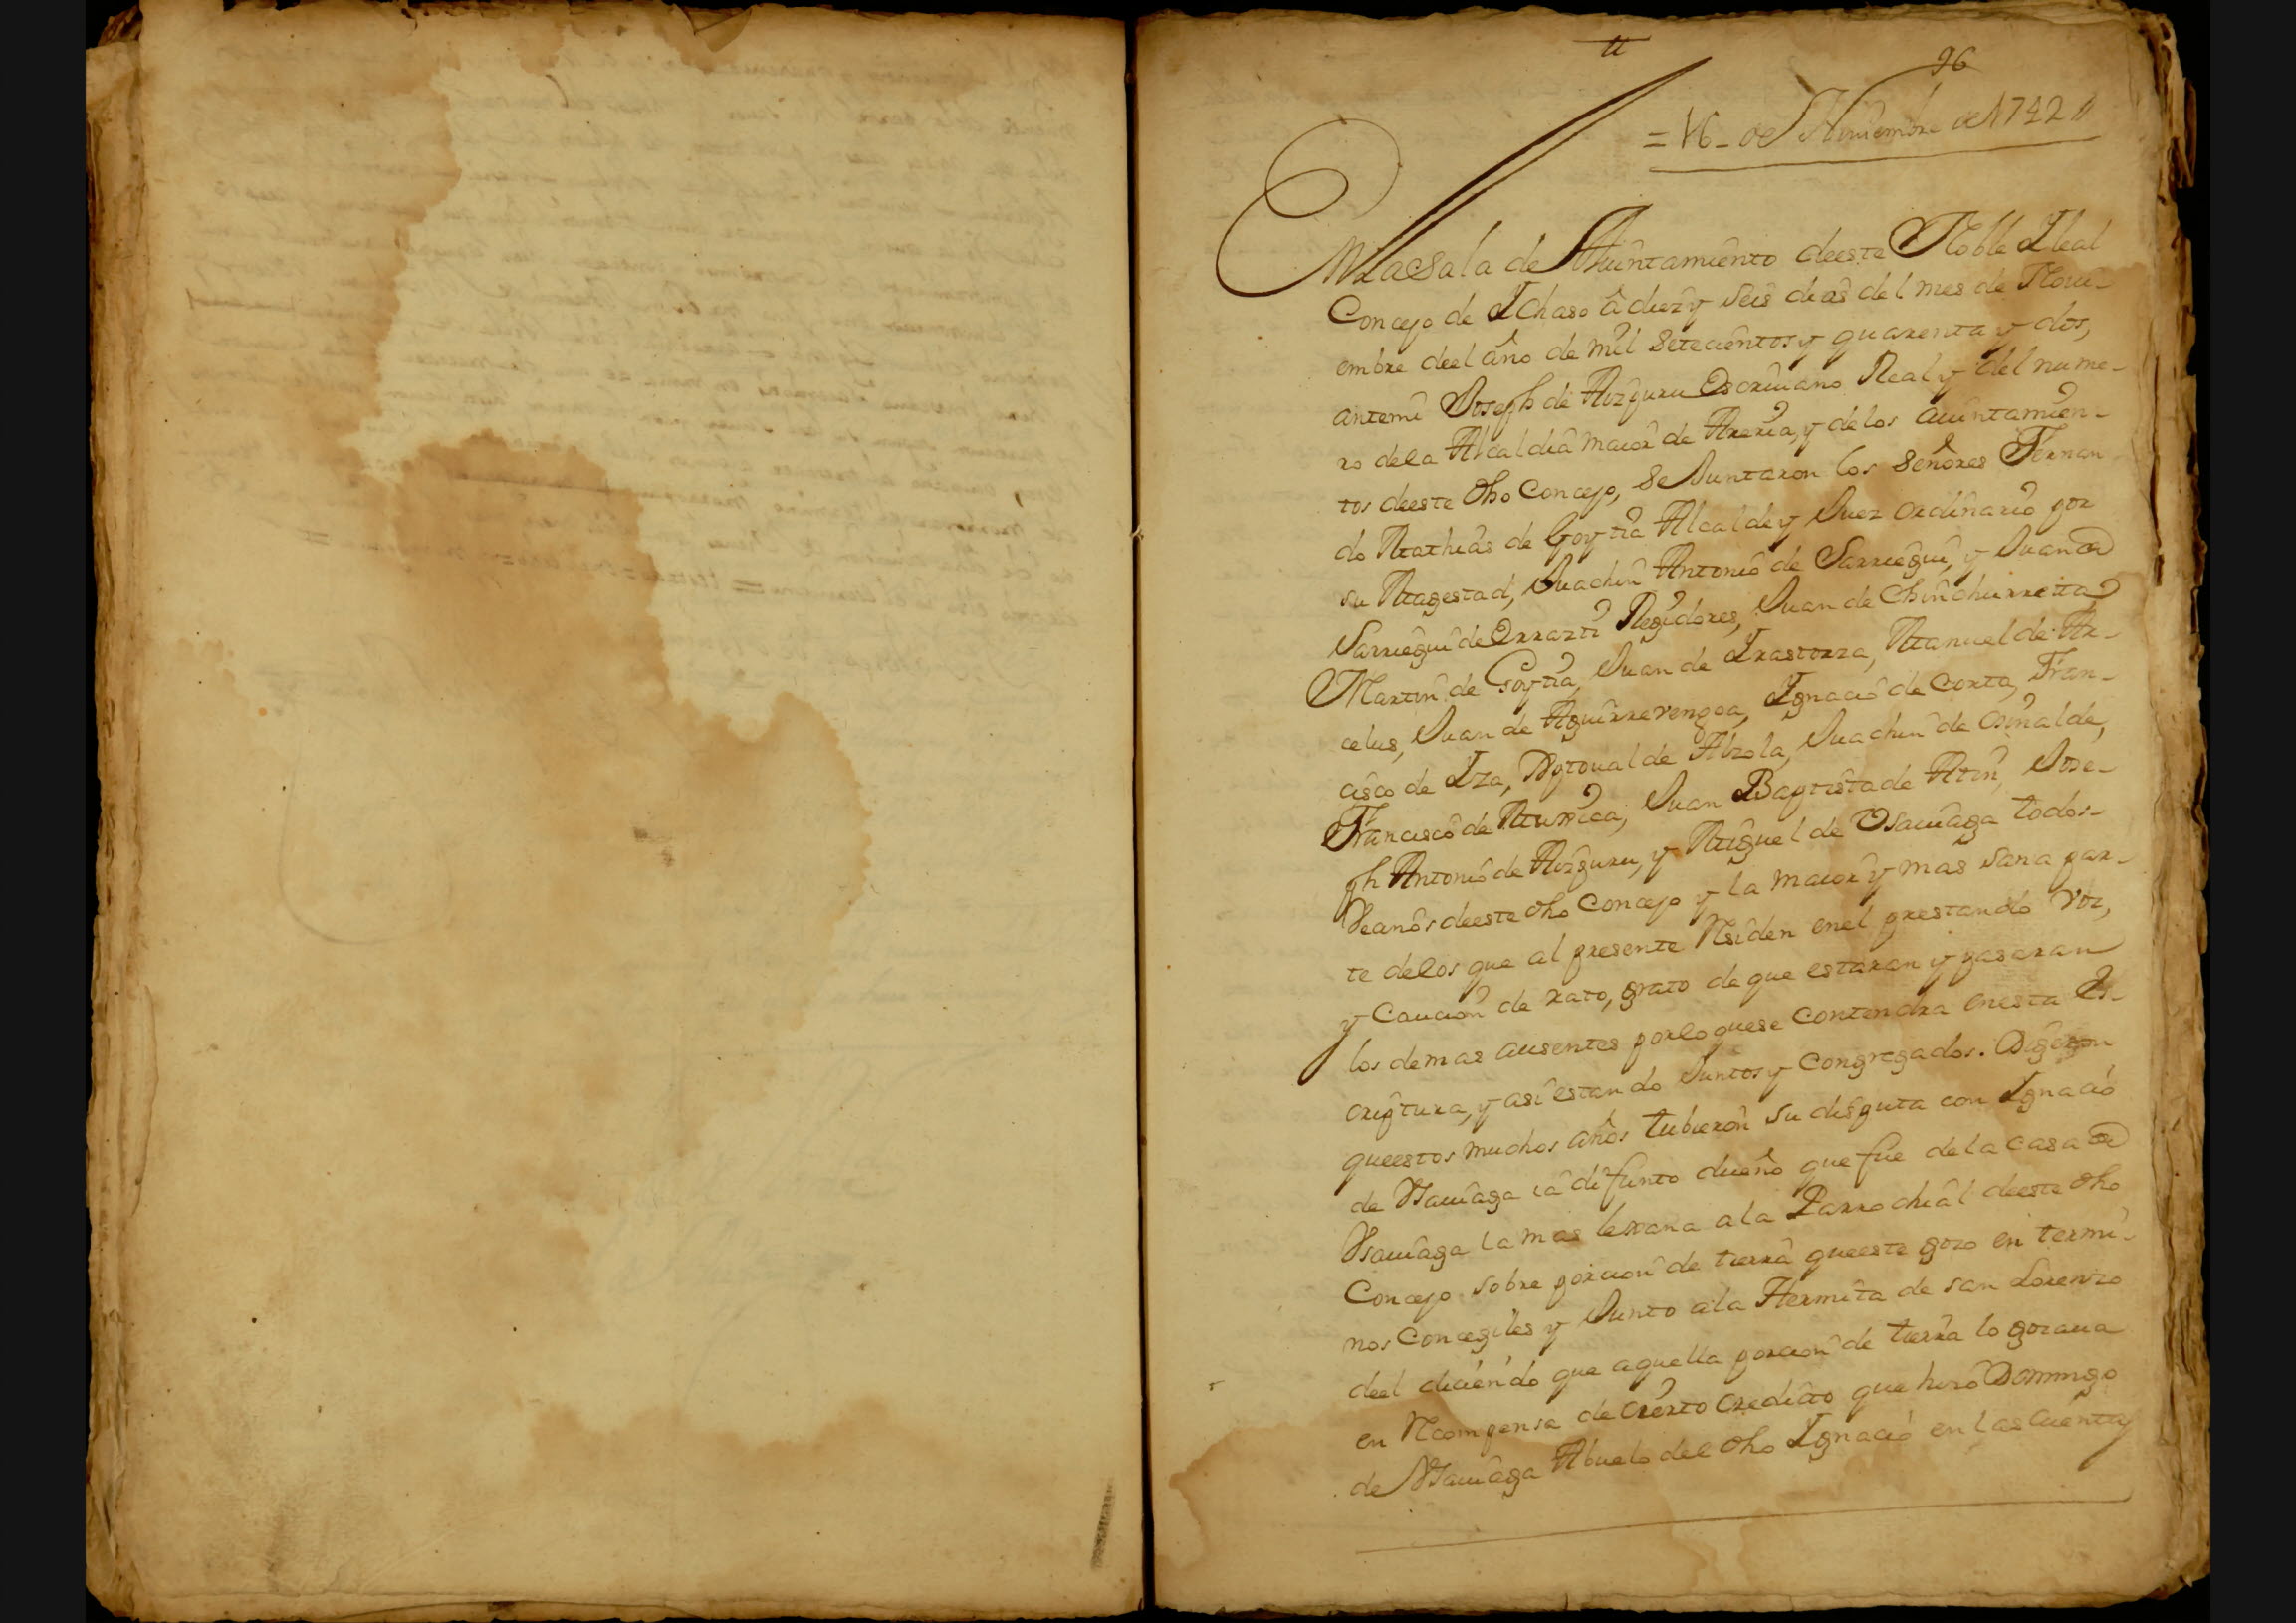 96
= 16 - de Noviembre de 1742 //
En la Sala de Aiuntamiento deeste Noble Ileal
Concejo de Ichaso â diez y seis dias del mes de Novi-
embre deel año de mil setecientos y quarenta y dos,
antemi Joseph de Aizpuru Escrivano Real y del nume-
ro dela Alcaldia maior de Areria, y delos aiuntamien-
tos deeste dho Concejo, Se Juntaron los Señores Fernan
do Mathias de Goytia Alcalde y Juez ordinario por
su Magestad, Juachin Antonio de Sarriegui, y Juan de
Sarriegui de Orrazti Regidores, Juan de Chinchurreita
Martin de Goytia, Juan de Irastorza, Manuel de Ar-
celus, Juan de Aguirrevengoa, Ignacio de Corta, Fran-
cisco de Iza, Xptoual de Alzola, Juachin de Osinalde,
Francisco de Mugica, Juan Baptista de Atin, Jose-
ph Antonio de Aizpuru, y Miguel de Vsauiaga todos
Vecinos deeste dho Concejo y la maior y mas sana par-
te delos que al presente Residen enel prestando voz,
y Caucion de rato, grato de que estaran y pasaran
los demas ausentes por lo quese contendra enesta Es-
criptura, y asi estando Juntos y Congregados. Digeron
queestos muchos años tubieron su disputa con Ignacio
de Vsauiaga iâ difunto dueño que fue dela casa de
Vsauiaga la mas lexana a la Parrochial deeste dho
Concejo sobre porcion de tierra queeste gozo en termi-
nos Concegiles y Junto ala Hermita de san Lorenzo
deel diciendo que aquella porcion de tierra lo gozaua
en Recompensa de cierto credicto que hizo Domingo
de Vsauiaga Abuelo del dho Ignacio en las Cuentas